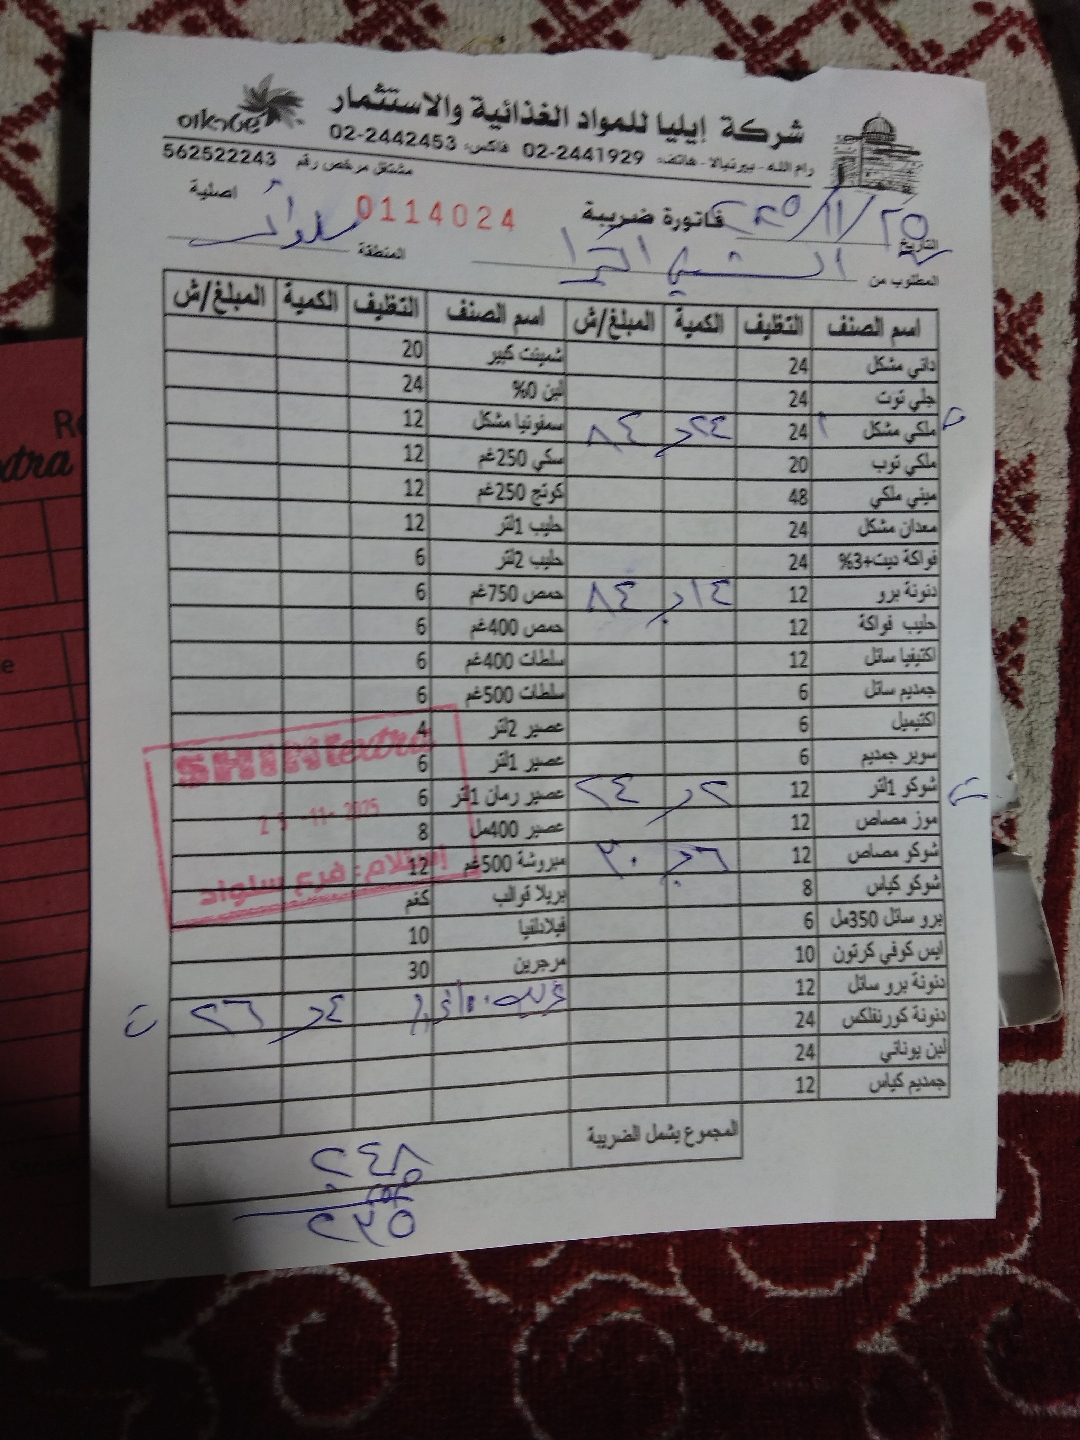 شركة إيليا للمواد الغذائية والاستثمار
رام الله - بيرنبالا - هاتف: 02-2441929 فاكس: 02-2442453
مشتغل مرخص رقم 562522243
שטראוס
اصلية
0114024
فاتورة ضريبة
التاريخ ٢٠٢٥/١١/٢٥
المطلوب من
المنطقة سلواد
اسم الصنف التظيف الكمية المبلغ/ش اسم الصنف التظيف الكمية المبلغ/ش
داني مشكل 24 شمينت كبير 20
جلي توت 24 لبن 0% 24
ملكي مشكل 24 ٢٤ ٨٤ سمفونيا مشكل 12
ملكي توب 20 سكي 250غم 12
ميني ملكي 48 كوتج 250غم 12
معدان مشكل 24 حليب 1لتر 12
فواكة ديت+3% 24 حليب 2لتر 6
دنونة برو 12 ٨٤ حمص 750غم 6
حليب فواكة 12 حمص 400غم 6
اكتيفيا سائل 12 سلطات 400غم 6
جمديم سائل 6 سلطات 500غم 6
اكتيميل 6 عصير 2لتر 4
سوبر جمديم 6 عصير 1لتر 6
شوكو 1لتر 12 ٢ ٢٤ عصير رمان 1لتر 6
موز مصاص 12 عصير 400مل 8
شوكو مصاص 12 ٦ ٣٠ مبروشة 500غم 12
شوكو كياس 8 بريلا قوالب كغم
برو سائل 350مل 6 فيلادلفيا 10
ايس كوفي كرتون 10 مرجرين 30
دنونة برو سائل 12 ٤ ٢٦
دنونة كورنفلكس 24
لبن يوناني 24
جمديم كياس 12
المجموع يشمل الضريبة ٢٤٨
٢٣٥
SHINI extra
25 -11- 2025
إستلام: فرع سلواد